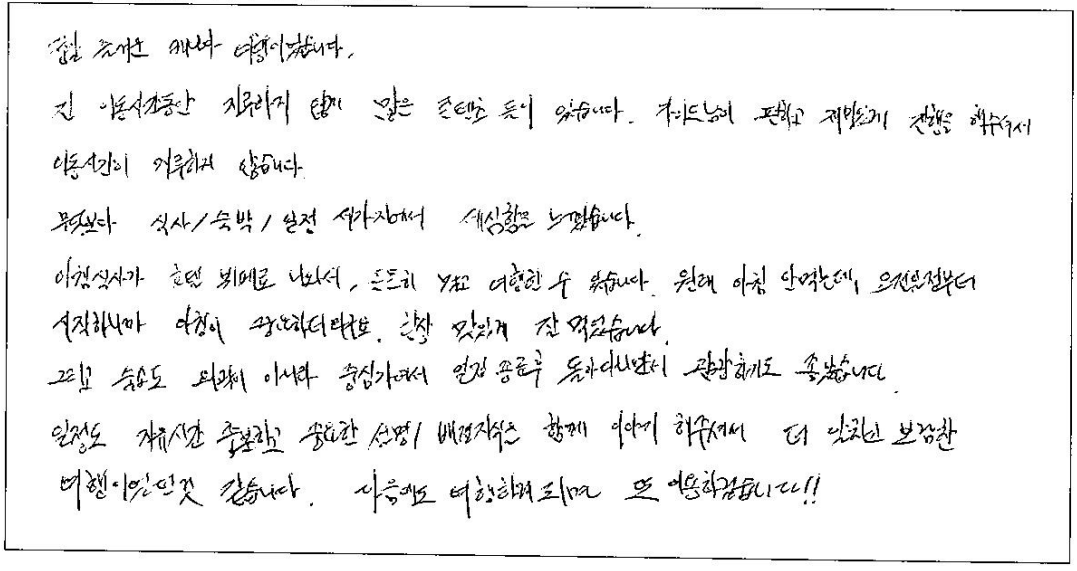 즐거운 여행이었습니다.
긴 이동시간동안 지루하지 않게 많은 콘텐츠 등이 있습니다. 가이드님이 편하고 재밌게 진행을 해주셔서
이동시간이 지루하지 않습니다.
무엇보다 식사/숙박/일정 세가지에서 세심함을 느꼈습니다.
아침식사가 호텔 뷔페로 나와서, 든든히 먹고 여행할 수 있습니다. 원래 아침 안먹는데, 오전일정부터
시작하니까 아침이 중요하더라구요. 항상 맛있게 잘 먹었습니다.
그리고 숙소도 외곽이 아니라 중심가여서 일정 종료후 돌아다니면서 관광하기도 좋았습니다.
일정도 자유시간 충분하고 중요한 설명/배경지식을 함께 이야기 해주셔서 더 알차고 보람찬
여행이였던것 같습니다. 다음에도 여행하게되면 또 이용하겠습니다!!